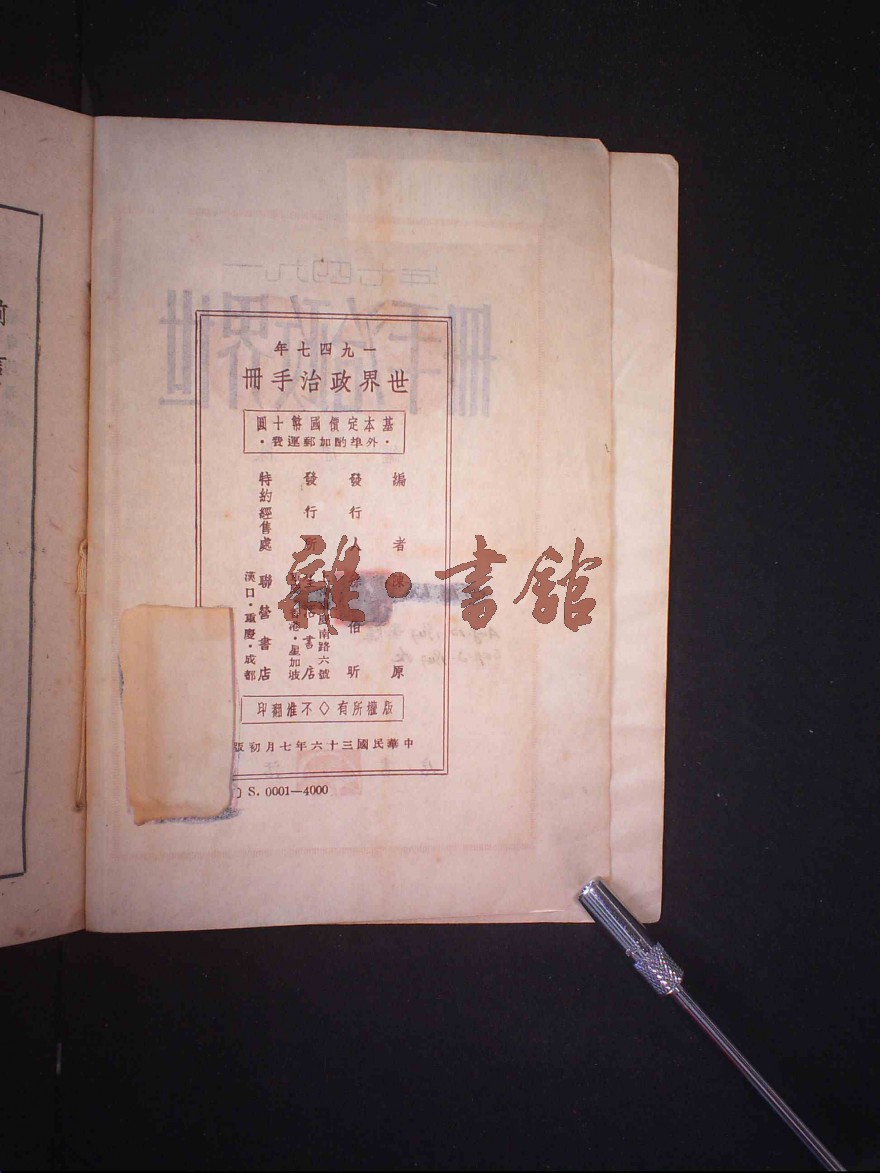 一九四七年
世界政治手冊
基本定價國幣十圓
·外埠酌加郵運費·
編者 陳原
發行人 伯昕
發行所 書店
南路六號
港·星加坡
特約經售處 聯營書店
漢口·重慶·成都
版權所有◇不准翻印
中華民國三十六年七月初版
S. 0001—4000
雜·書館